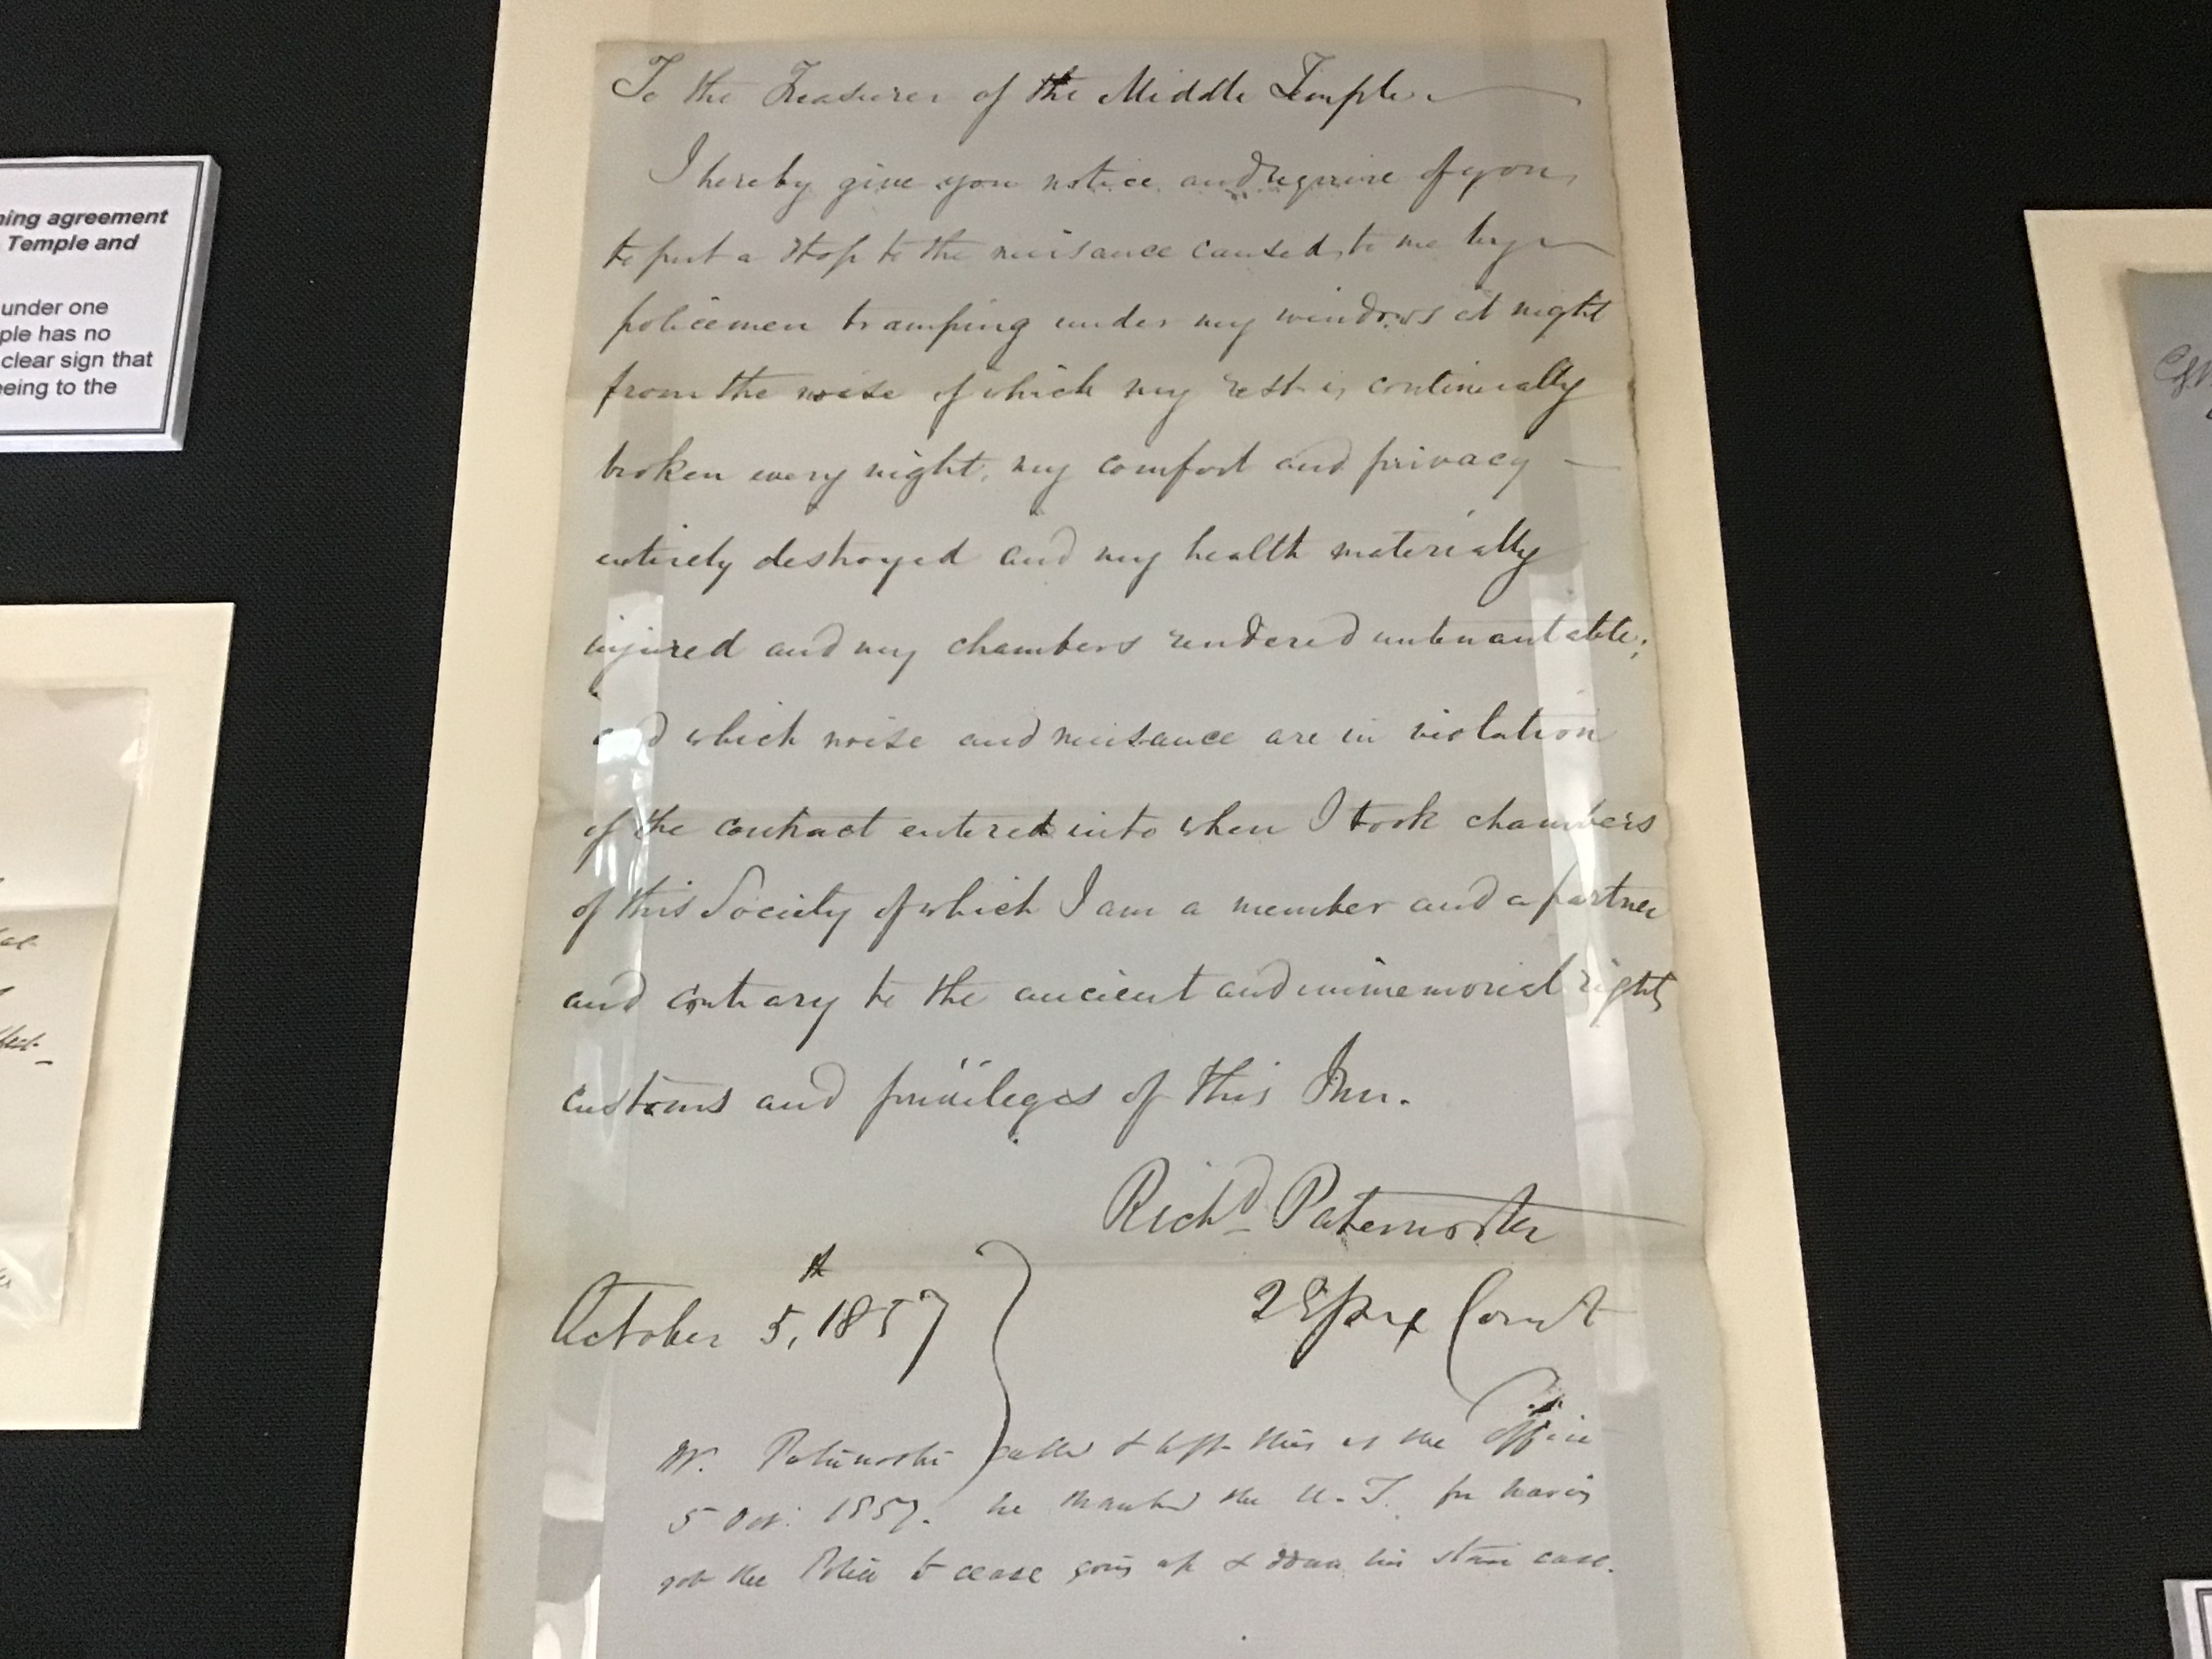 ning agreement
Temple and
under one
ple has no
clear sign that
eeing to the
To the Treasurer of the Middle Temple.
I hereby give you notice and require of you,
to put a stop to the nuisance caused to me by
policemen tramping under my windows at night
from the noise of which my rest is continually
broken every night, my comfort and privacy
entirely destroyed and my health materially
injured and my chambers rendered untenantable;
and which noise and nuisance are in violation
of the contract entered into when I took chambers
of this Society of which I am a member and a partner
and contrary to the ancient and immemorial rights
customs and privileges of this Inn.
Richd Paternoster
October 5th, 1857
2 Essex Court
Mr. Paternoster called & left this at the Office
5 Oct: 1857. he thanked the U. T. for having
got the Police to cease going up & down his stair case.